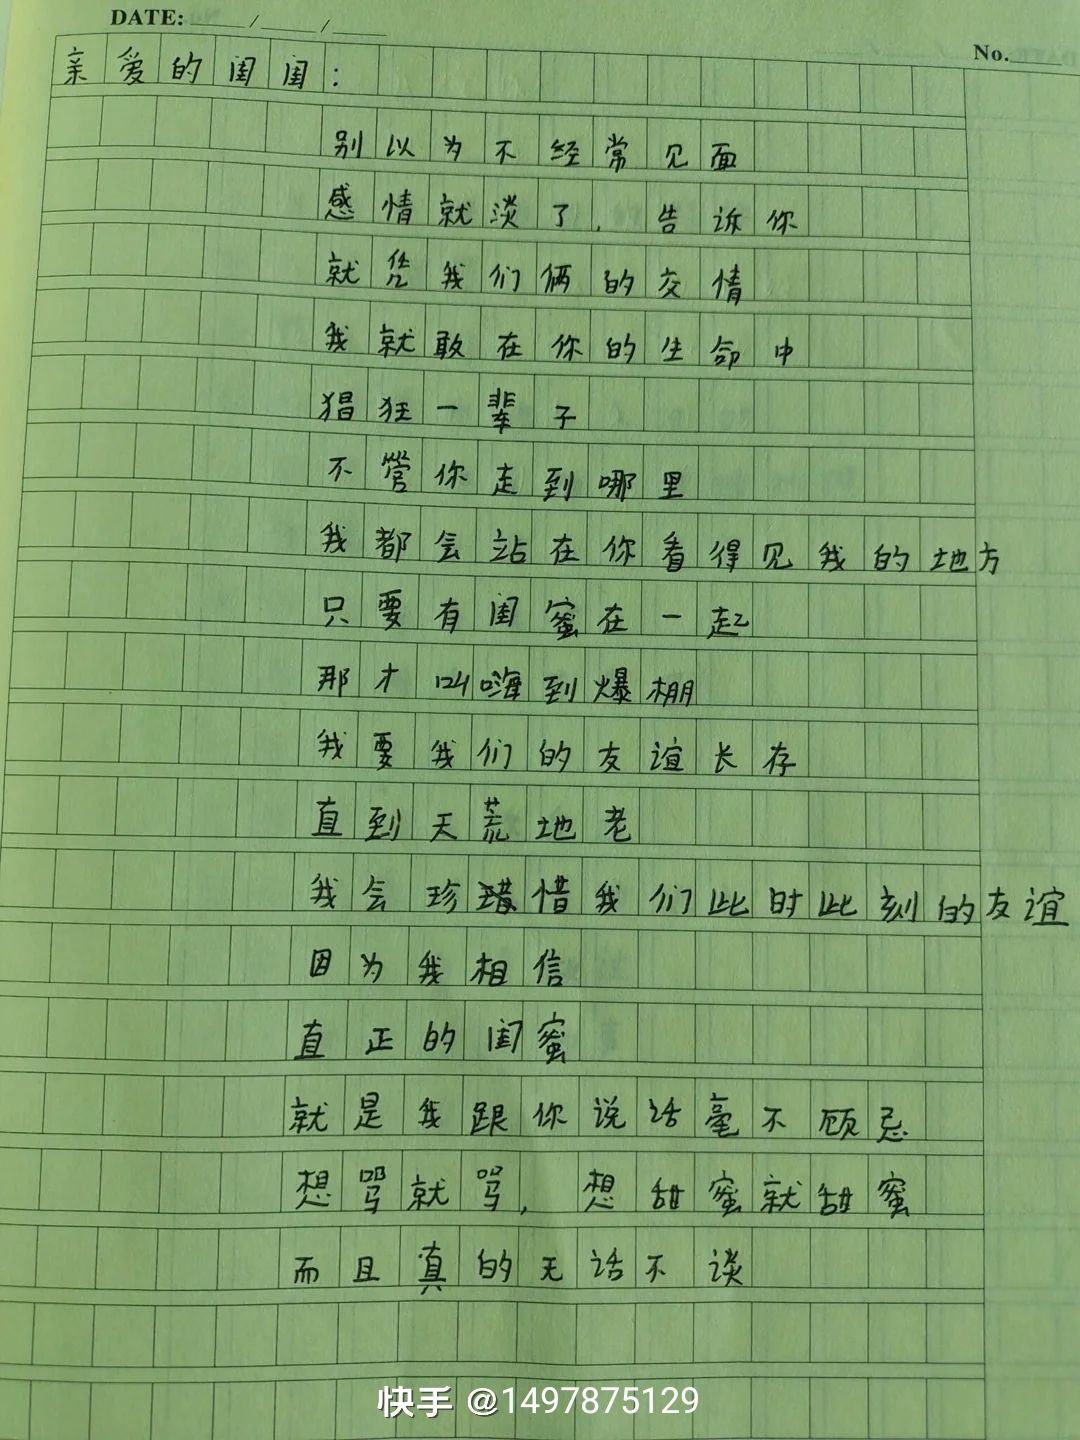 DATE: ___/___/___
No.
亲爱的闺闺:
别以为不经常见面
感情就淡了,告诉你
就凭我们俩的交情
我就敢在你的生命中
猖狂一辈子
不管你走到哪里
我都会站在你看得见我的地方
只要有闺蜜在一起
那才叫嗨到爆棚
我要我们的友谊长存
直到天荒地老
我会珍惜我们此时此刻的友谊
因为我相信
直正的闺蜜
就是我跟你说话毫不顾忌
想骂就骂,想甜蜜就甜蜜
而且真的无话不谈
快手 @1497875129